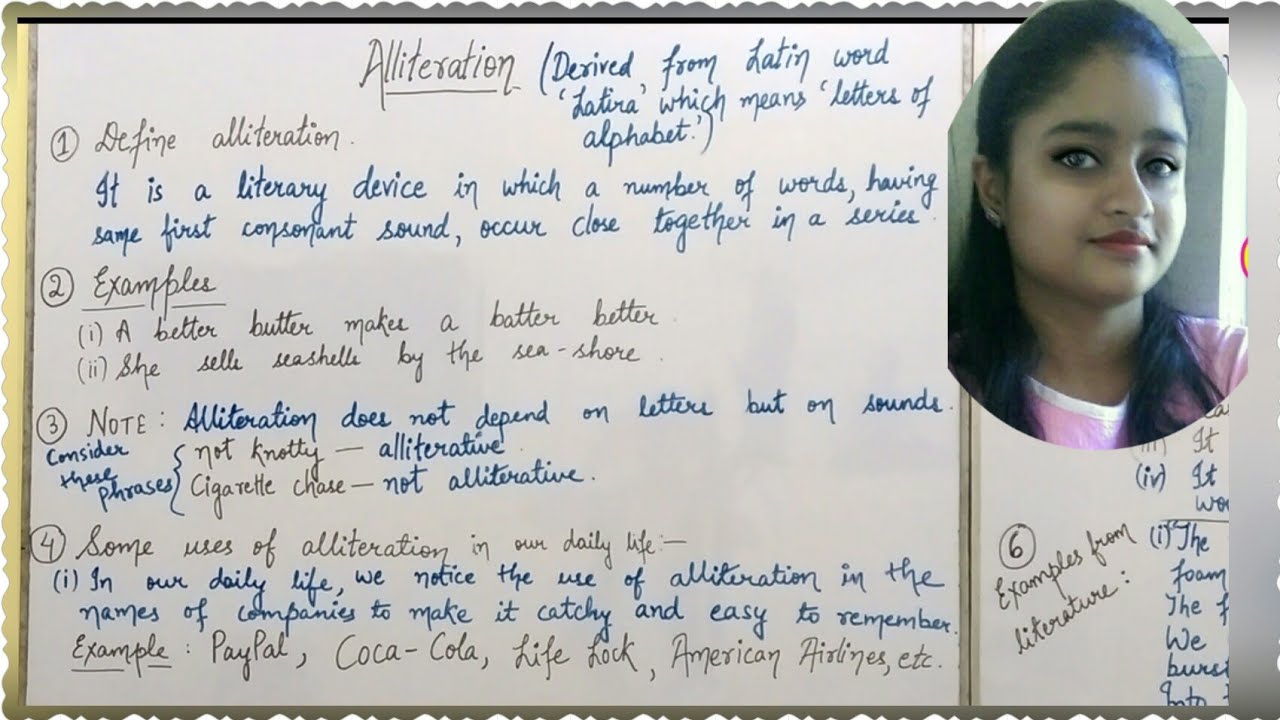 Alliteration (Derived from Latin word
'Latira' which means 'letters of
alphabet.')
① Define alliteration.
It is a literary device in which a number of words, having
same first consonant sound, occur close together in a series.
② Examples
(i) A better butter makes a batter better.
(ii) She sells seashells by the sea-shore.
③ NOTE: Alliteration does not depend on letters but on sounds.
Consider these phrases
not knotty — alliterative.
Cigarette chase — not alliterative.
④ Some uses of alliteration in our daily life:—
(i) In our daily life, we notice the use of alliteration in the
names of companies to make it catchy and easy to remember.
Example: PayPal, Coca-Cola, Life Lock, American Airlines, etc.
It
(iv) It
⑥ Examples from literature:
(i) The
foam
The
We
burst